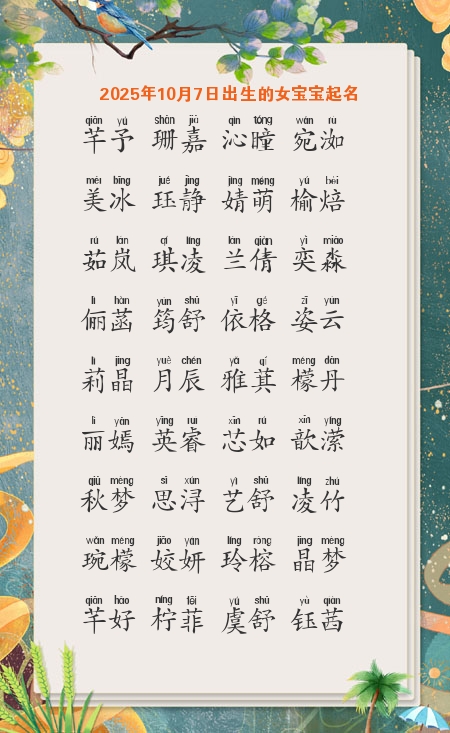 2025年10月7日出生的女宝宝起名
qiān yú shān jiā qìn tóng wǎn rù
芊予 珊嘉 沁瞳 宛洳
měi bīng jué jìng jìng méng yú bèi
美冰 珏静 婧萌 榆焙
rú lán qí líng lán qiàn yì miǎo
茹岚 琪凌 兰倩 奕淼
lì hàn yún shū yī gé zī yún
俪菡 筠舒 依格 姿云
lì jīng yuè chén yǎ qí méng dān
莉晶 月辰 雅萁 檬丹
lì yān yīng ruì xīn rú xīn yíng
丽嫣 英睿 芯如 歆潆
qiū mèng sī xún yì shū líng zhú
秋梦 思浔 艺舒 凌竹
wǎn méng jiāo yán líng róng jīng mèng
琬檬 姣妍 玲榕 晶梦
qiān hǎo níng fēi yú shū yù qiàn
芊好 柠菲 虞舒 钰茜